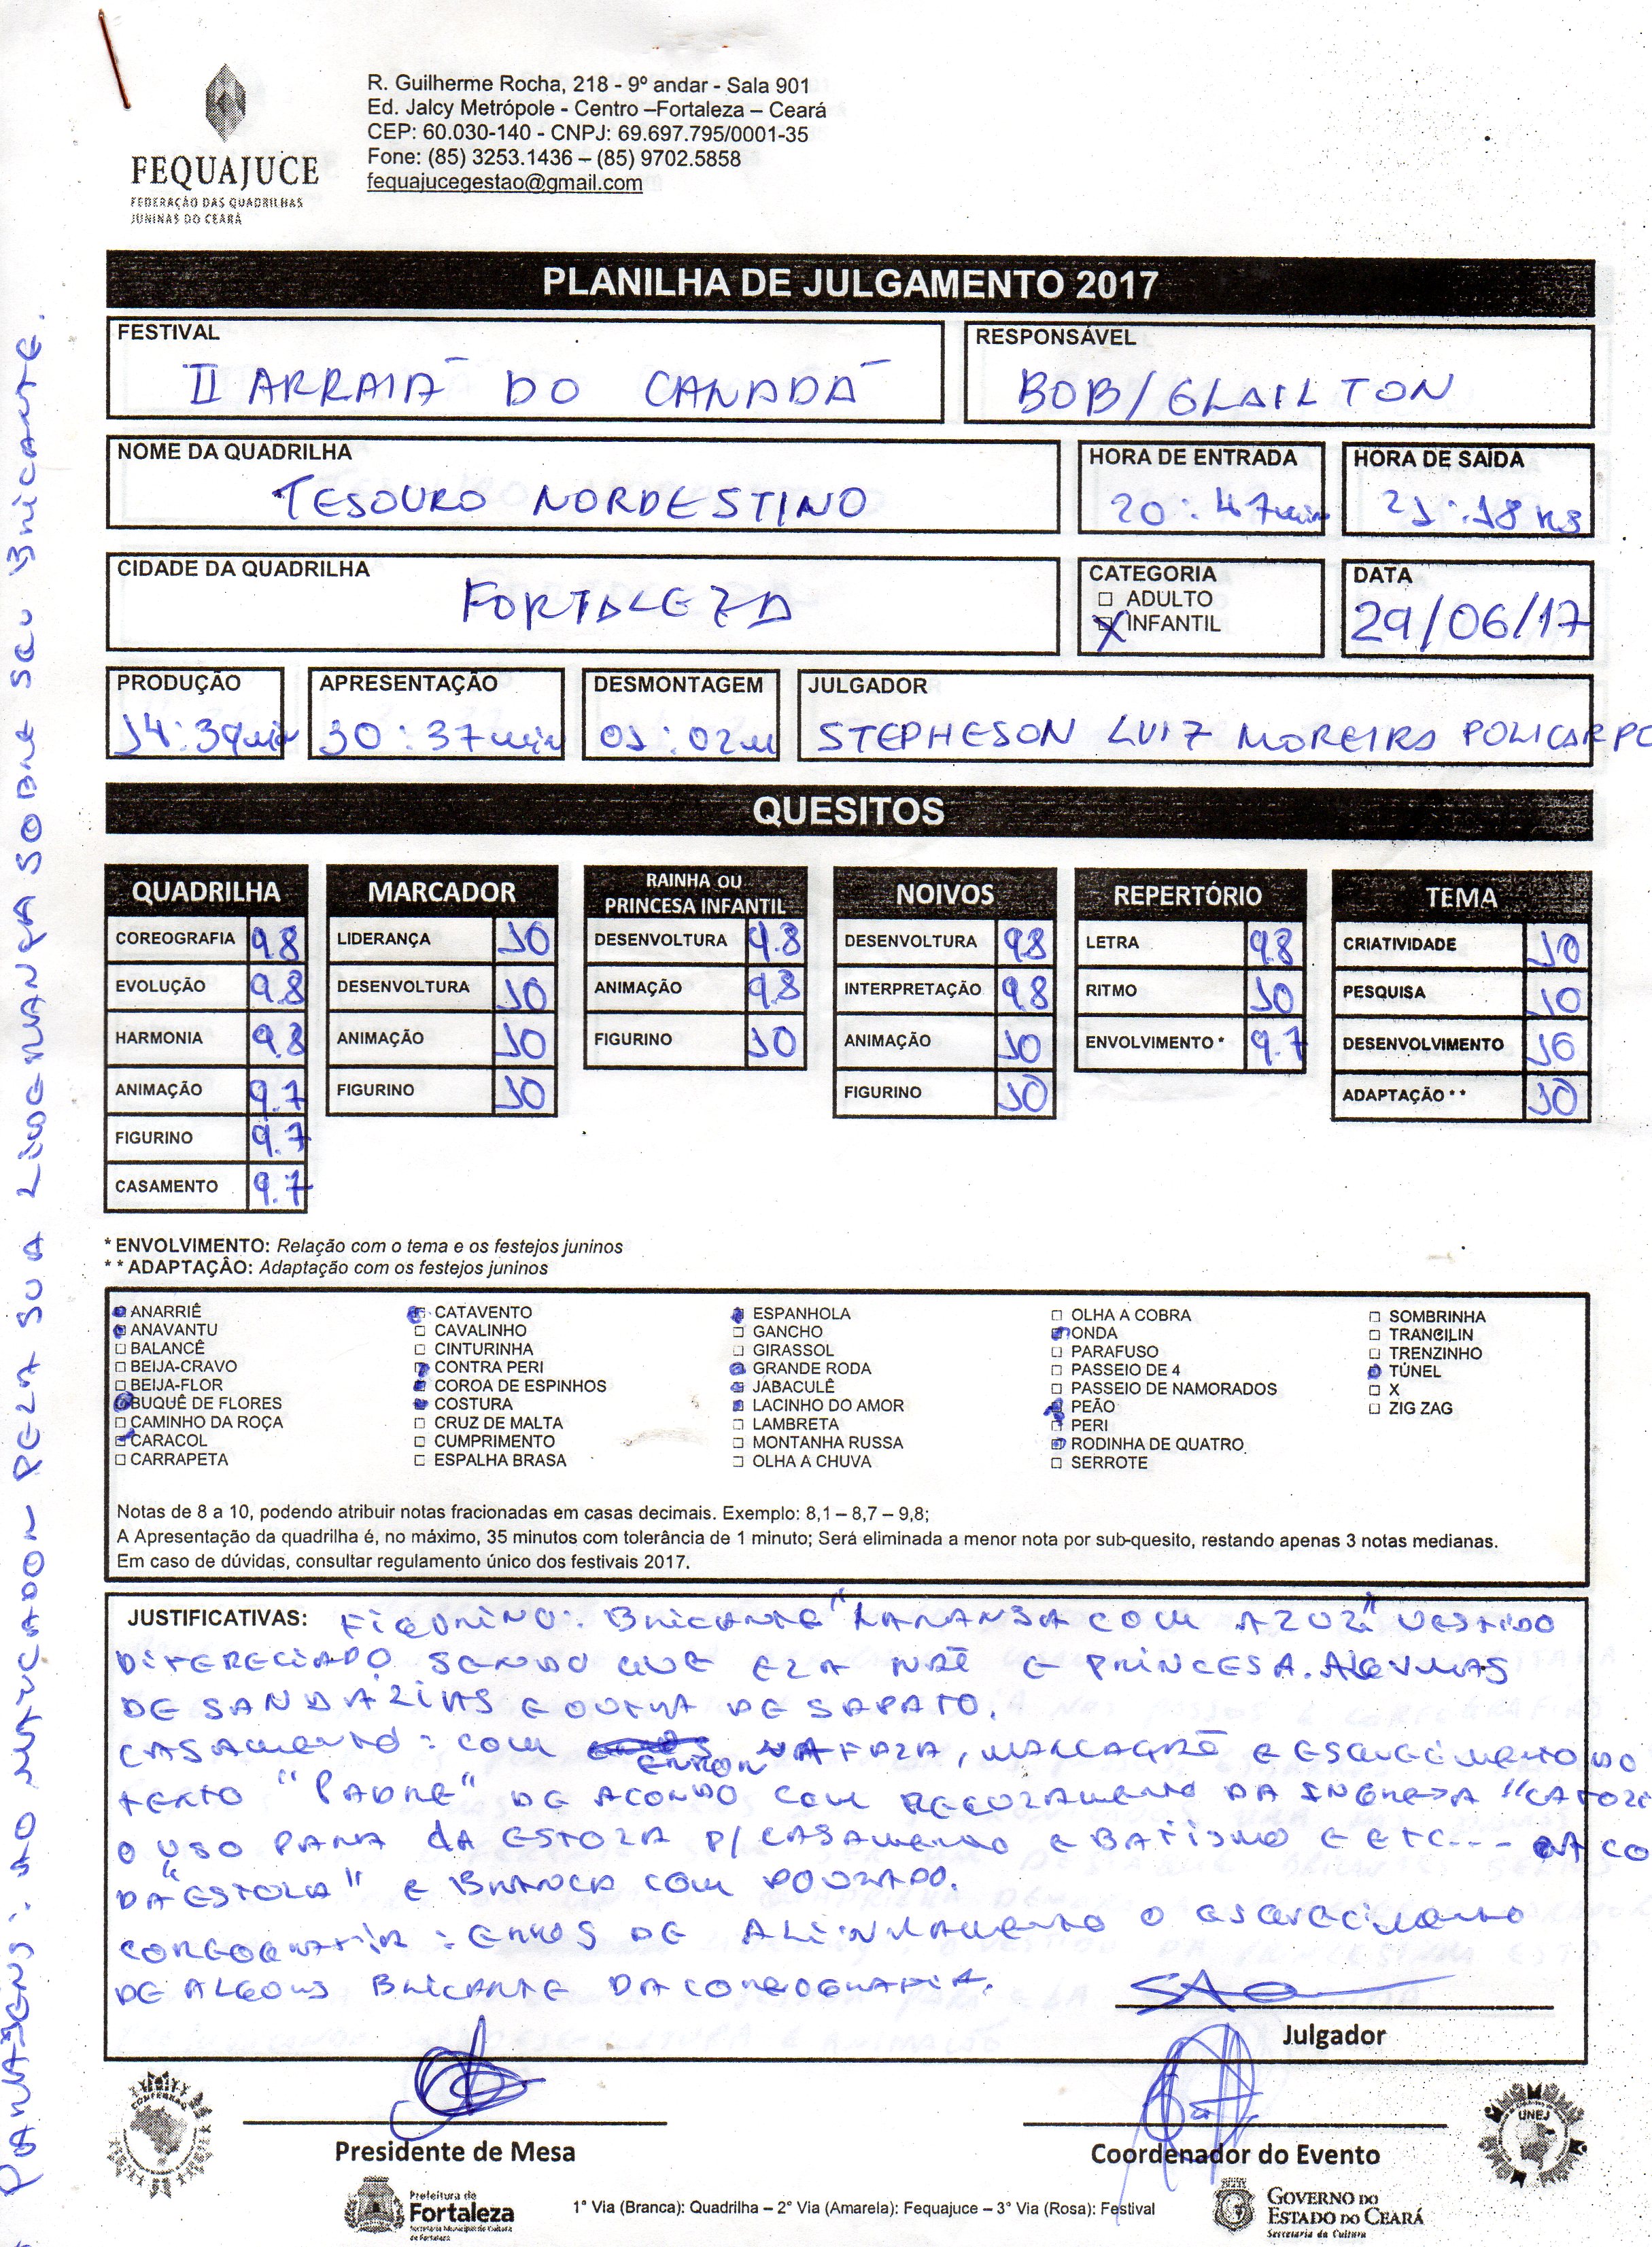 R. Guilherme Rocha, 218 - 9º andar - Sala 901
Ed. Jalcy Metrópole - Centro –Fortaleza – Ceará
CEP: 60.030-140 - CNPJ: 69.697.795/0001-35
Fone: (85) 3253.1436 – (85) 9702.5858
fequajucegestao@gmail.com
FEQUAJUCE
FEDERAÇÃO DAS QUADRILHAS
JUNINAS DO CEARÁ
PLANILHA DE JULGAMENTO 2017
FESTIVAL
II ARRAIÁ DO CANADÁ
RESPONSÁVEL
BOB/GLAILTON
NOME DA QUADRILHA
TESOURO NORDESTINO
HORA DE ENTRADA
20:47min
HORA DE SAÍDA
21:18 hs
CIDADE DA QUADRILHA
FORTALEZA
CATEGORIA
ADULTO
X INFANTIL
DATA
29/06/17
PRODUÇÃO
14:39min
APRESENTAÇÃO
30:37min
DESMONTAGEM
01:02m
JULGADOR
STEPHESON LUIZ MOREIRA POLICARPO
QUESITOS
QUADRILHA
COREOGRAFIA 9.8
EVOLUÇÃO 9.8
HARMONIA 9.8
ANIMAÇÃO 9.7
FIGURINO 9.7
CASAMENTO 9.7
MARCADOR
LIDERANÇA 10
DESENVOLTURA 10
ANIMAÇÃO 10
FIGURINO 10
RAINHA OU
PRINCESA INFANTIL
DESENVOLTURA 9.8
ANIMAÇÃO 9.8
FIGURINO 10
NOIVOS
DESENVOLTURA 9.8
INTERPRETAÇÃO 9.8
ANIMAÇÃO 10
FIGURINO 10
REPERTÓRIO
LETRA 9.8
RITMO 10
ENVOLVIMENTO * 9.7
TEMA
CRIATIVIDADE 10
PESQUISA 10
DESENVOLVIMENTO 10
ADAPTAÇÃO ** 10
* ENVOLVIMENTO: Relação com o tema e os festejos juninos
** ADAPTAÇÂO: Adaptação com os festejos juninos
ANARRIÊ
ANAVANTU
BALANCÊ
BEIJA-CRAVO
BEIJA-FLOR
BUQUÊ DE FLORES
CAMINHO DA ROÇA
CARACOL
CARRAPETA
CATAVENTO
CAVALINHO
CINTURINHA
CONTRA PERI
COROA DE ESPINHOS
COSTURA
CRUZ DE MALTA
CUMPRIMENTO
ESPALHA BRASA
ESPANHOLA
GANCHO
GIRASSOL
GRANDE RODA
JABACULÊ
LACINHO DO AMOR
LAMBRETA
MONTANHA RUSSA
OLHA A CHUVA
OLHA A COBRA
ONDA
PARAFUSO
PASSEIO DE 4
PASSEIO DE NAMORADOS
PEÃO
PERI
RODINHA DE QUATRO
SERROTE
SOMBRINHA
TRANCILIN
TRENZINHO
TÚNEL
X
ZIG ZAG
Notas de 8 a 10, podendo atribuir notas fracionadas em casas decimais. Exemplo: 8,1 – 8,7 – 9,8;
A Apresentação da quadrilha é, no máximo, 35 minutos com tolerância de 1 minuto; Será eliminada a menor nota por sub-quesito, restando apenas 3 notas medianas.
Em caso de dúvidas, consultar regulamento único dos festivais 2017.
JUSTIFICATIVAS: FIGURINO: BRICANTE "LARANJA COM AZUL" VESTIDO
DIFERECIADO SENDO QUE ELA NÃE E PRINCESA. ALGUMAS
DE SANDÁLIAS E OUTRA DE SAPATO.
CASAMENTO: COM ERROR NA FALA, MARCAÇÃE E ESQUECIMENTO DO
TEXTO "PADRE" DE ACORDO COM REGULAMENTO DA INGREJA "CATOLI
O USO PARA DA ESTOLA P/ CASAMENTO E BATISMO E ETC--- A CO
DA "ESTOLA" E BRANCA COM DOURADO.
COREOGRAFIA: ERROS DE ALINHAMENTO O ESQUECIMENTO
DE ALGUNS BRICANTE DA COREOGRAFIA.
Julgador
Presidente de Mesa
Coordenador do Evento
UNEJ
Prefeitura de
Fortaleza
Secretaria Municipal de Cultura
de Fortaleza
1° Via (Branca): Quadrilha – 2° Via (Amarela): Fequajuce – 3° Via (Rosa): Festival
GOVERNO DO
ESTADO DO CEARÁ
Secretaria da Cultura
PARABÉNS: AO MARCADOR PELA SUA LIDERANÇA SOBRE SEU BRICANTE.